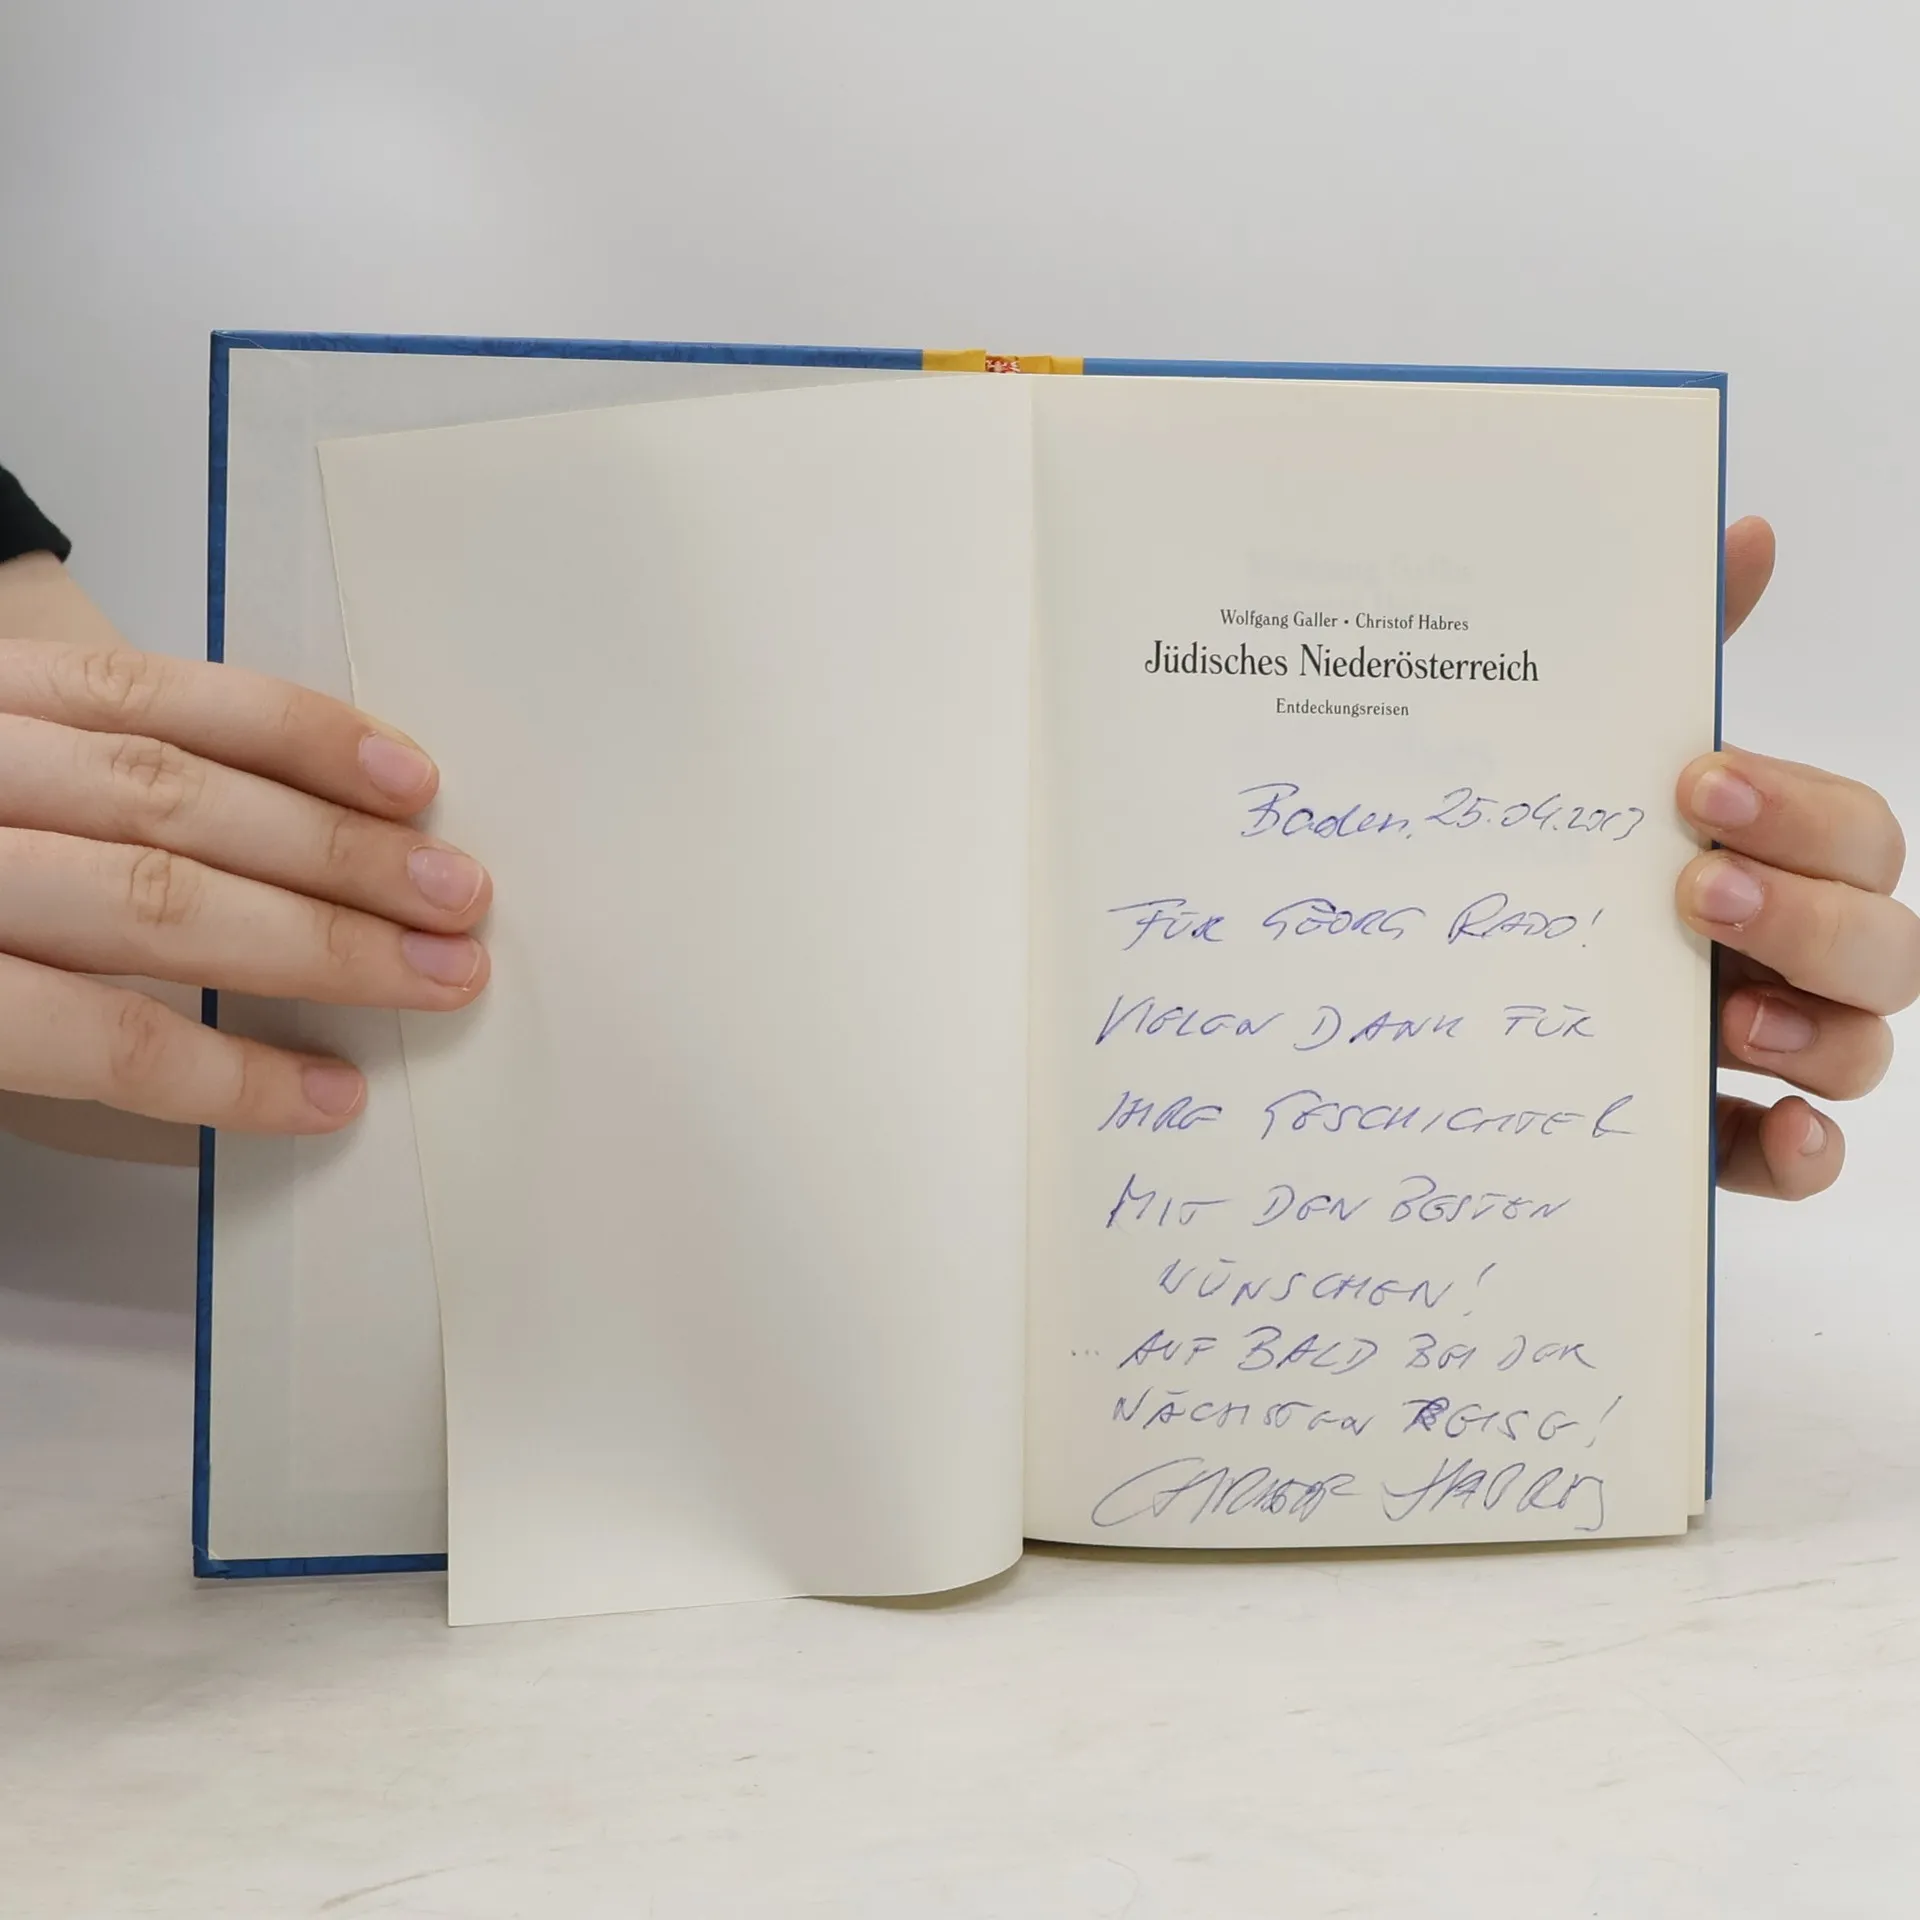 Wolfgang Galler • Christof Habres
Jüdisches Niederösterreich
Entdeckungsreisen
Baden, 25.04.2013
FÜR GEORG RADO!
VIELEN DANK FÜR
IHRE GESCHICHTE &
MIT DEN BESTEN
WÜNSCHEN!
... AUF BALD BEI DER
NÄCHSTEN REISE!
CHRISTOF HABRES